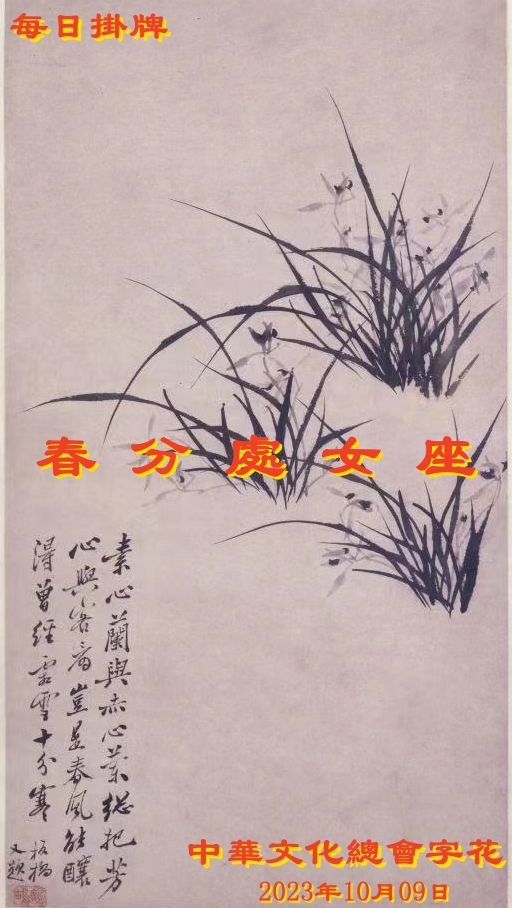 每日掛牌
春分處女座
素心蘭與赤心蘭總把芳
心與客看豈是春風能釀
得曾經霜雪十分寒
板橋
又題
中華文化總會字花
2023年10月09日